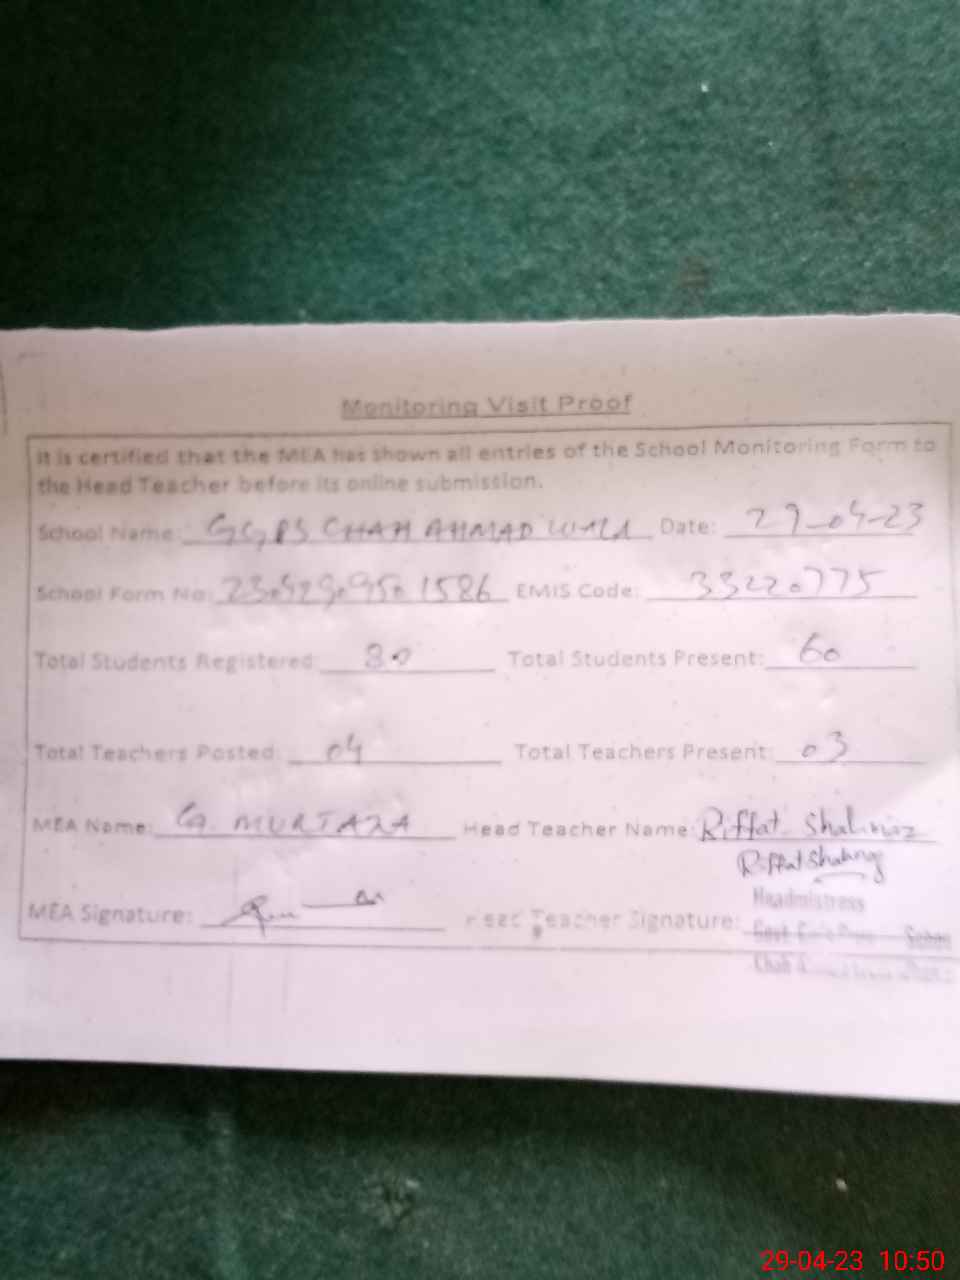 Monitoring Visit Proof
It is certified that the MEA has shown all entries of the School Monitoring Form to
the Head Teacher before its online submission.
School Name: GGPS CHAH AHMAD WALA Date: 29-04-23
School Form No: EMIS Code: 33220775
Total Students Registered: 80 Total Students Present: 60
Total Teachers Posted: 04 Total Teachers Present: 03
MEA Name: G. MURTAZA Head Teacher Name: Riffat Shahnaz
Riffat Shahnaz
MEA Signature: Head Teacher Signature:
Headmistress
Govt School
Chah
29-04-23 10:50